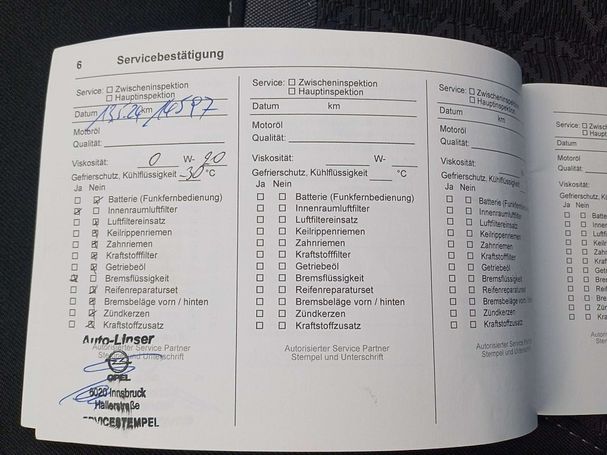 6 Servicebestätigung
Service: Zwischeninspektion
Hauptinspektion
Datum km
Motoröl
Qualität:
Viskosität: 0 W- 20
Gefrierschutz, Kühlflüssigkeit -30 °C
Ja Nein
Batterie (Funkfernbedienung)
Innenraumluftfilter
Luftfiltereinsatz
Keilrippenriemen
Zahnriemen
Kraftstofffilter
Getriebeöl
Bremsflüssigkeit
Reifenreparaturset
Bremsbeläge vorn / hinten
Zündkerzen
Kraftstoffzusatz
Auto-Linser
Autorisierter Service Partner
Stempel und Unterschrift
OPEL
6020 Innsbruck
Hallerstraße
SERVICESTEMPEL
Service: Zwischeninspektion
Hauptinspektion
Datum km
Motoröl
Qualität:
Viskosität: W-
Gefrierschutz, Kühlflüssigkeit °C
Ja Nein
Batterie (Funkfernbedienung)
Innenraumluftfilter
Luftfiltereinsatz
Keilrippenriemen
Zahnriemen
Kraftstofffilter
Getriebeöl
Bremsflüssigkeit
Reifenreparaturset
Bremsbeläge vorn / hinten
Zündkerzen
Kraftstoffzusatz
Autorisierter Service Partner
Stempel und Unterschrift
Service: Zwischeninspektion
Hauptinspektion
Datum km
Motoröl
Qualität:
Viskosität:
Gefrierschutz, Kühlflüssigkeit
Ja Nein
Batterie (Funkfernbedienung)
Innenraumluftfilter
Luftfiltereinsatz
Keilrippenriemen
Zahnriemen
Kraftstofffilter
Getriebeöl
Bremsflüssigkeit
Reifenreparaturset
Bremsbeläge vorn / hinten
Zündkerzen
Kraftstoffzusatz
Autorisierter Service Partner
Stempel und Unterschrift
Service:
Datum
Motoröl
Qualität:
Viskosität:
Gefrierschutz,
Ja Nein